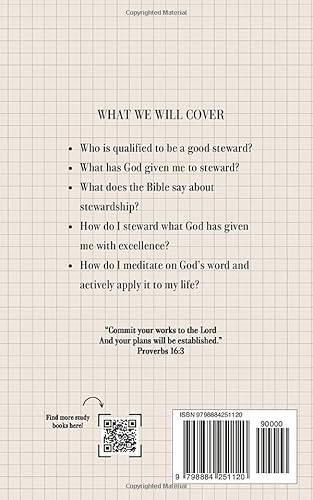 Copyrighted Material
WHAT WE WILL COVER
• Who is qualified to be a good steward?
• What has God given me to steward?
• What does the Bible say about
stewardship?
• How do I steward what God has given
me with excellence?
• How do I meditate on God's word and
actively apply it to my life?
"Commit your works to the Lord
And your plans will be established."
Proverbs 16:3
Find more study
books here!
ISBN 9798884251120
90000
9 798884 251120
Copyrighted Material